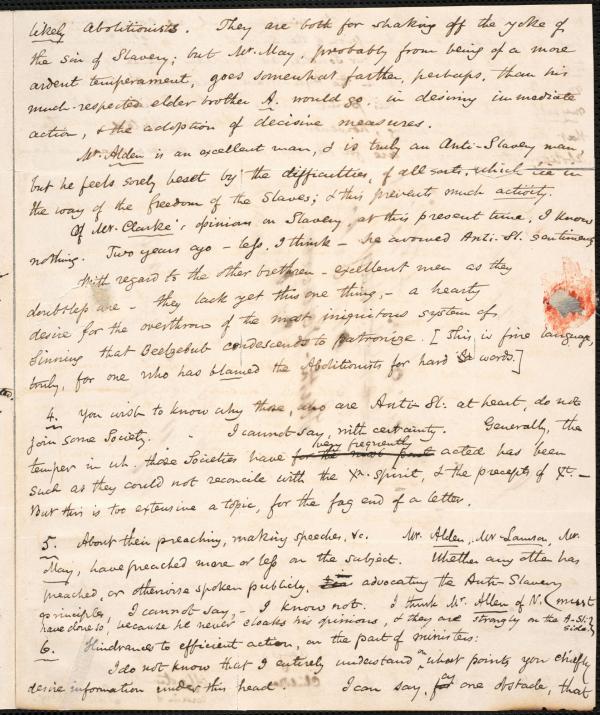 likely Abolitionists. They are both for shaking off the yoke of
the sin of Slavery; but Mr. May, probably from being of a more
ardent temperament, goes somewhat farther, perhaps, than his
much-respected elder brother A. would go, in desiring immediate
action, & the adoption of decisive measures.
Mr. Alden is an excellent man, & is truly an Anti-Slavery man,
but he feels sorely beset by the difficulties, of all sorts, which are in
the way of the freedom of the Slaves; & this prevents much activity.
Of Mr. Clarke's opinions on Slavery, at this present time, I know
nothing. Two years ago - less, I think - he avowed Anti-Sl. sentiments
With regard to the other brethren - excellent men as they
doubtless are - they lack yet this one thing, - a hearty
desire for the overthrow of the most iniquitous system of
sinning that Beelzebub condescends to patronize. [This is fine language,
truly, for one who has blamed the Abolitionists for hard words.]
4. You wish to know why those, who are Anti-Sl. at heart, do not
join some Society. - I cannot say, with certainty. Generally, the
very frequently
temper in wh. those Societies have for the most part acted has been
such as they could not reconcile with the Xn. spirit, & the precepts of Xt. -
But this is too extensive a topic, for the fag end of a letter.
5. About their preaching, making speeches, &c. Mr. Alden, Mr. Lamson, Mr.
May, have preached more or less on the subject. Whether any other has
preached, or otherwise spoken publicly, advocating the Anti-Slavery
principles I cannot say, - I know not. I think Mr. Allen of N. (must
have done so, because he never cloaks his opinions, & they are strongly on the A-Sl. side)
6. Hindrances to efficient action, on the part of ministers:
on
I do not know that I entirely understand what points you chiefly
desire information under this head. I can say, for one obstacle, that